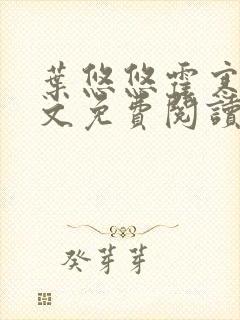 葉悠悠霍寒
文免費閱讀
癸芽芽